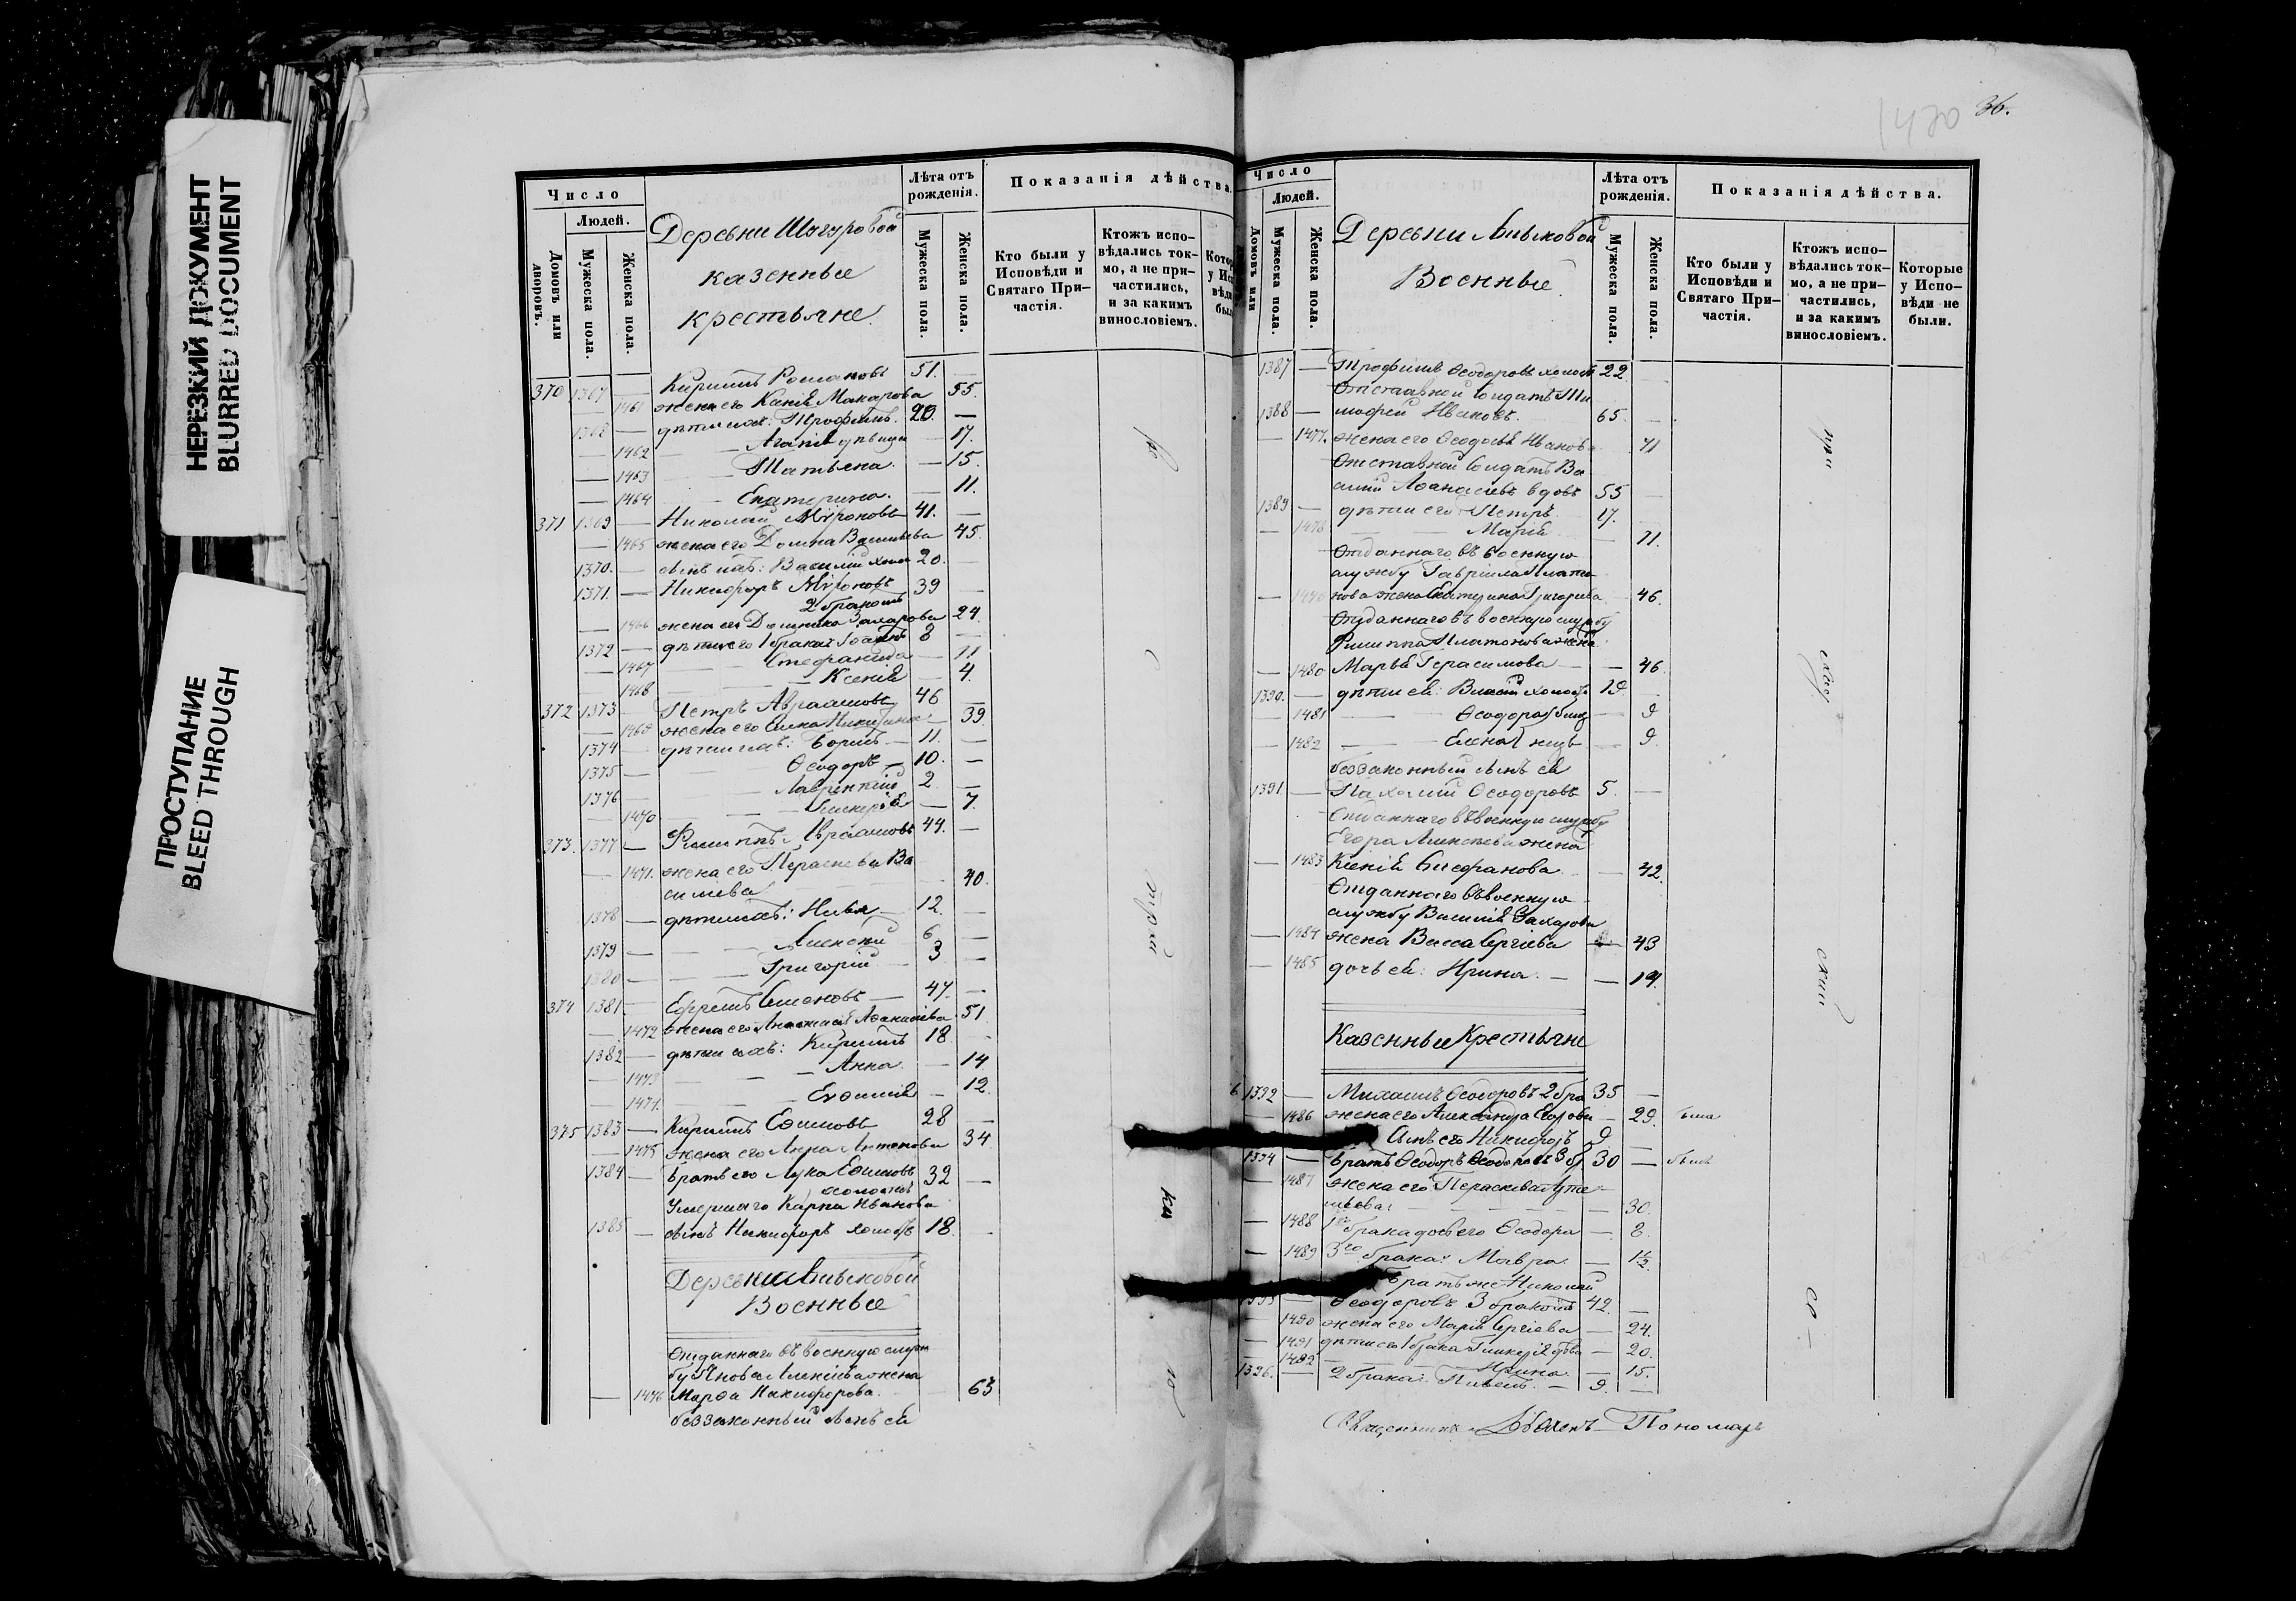 НЕРЕЗКИЙ ДОКУМЕНТ
BLURRED DOCUMENT
ПРОСТУПАНИЕ
BLEED THROUGH
Число
Людей.
Домовъ или дворовъ.
Мужеска пола.
Женска пола.
Деревни Шугуровой
казенные
крестьяне.
Лѣта отъ рожденія.
Мужеска пола.
Женска пола.
Показанія дѣйства.
Кто были у Исповѣди и Святаго При-частія.
Ктожъ испо-вѣдались ток-мо, а не при-частились, и за какимъ винословіемъ.
370 1367 — Кириллъ Романовъ 51. —
— 1461 жена его Ксенія Макарова 55.
1368 — дѣти ихъ: Трофимъ. 20. —
— 1462 — Агапія дѣвица — 17.
— 1463 — Татьяна. — 15.
— 1464 — Екатерина. — 11.
371 1369 — Николай Мѵроновъ 41. —
— 1465 жена его Домна Васильева 45.
1370. — сынъ ихъ: Василій холос 20. —
1371. — Никифоръ Мѵроновъ 39 —
2 бракомъ
— 1466 жена его Домника Захарова 24
1372 — дѣти его 1 брака: Іоаннъ 8 —
— 1467 — Стефанида — 11
— 1468 — Ксенія — 4.
372 1373 — Петръ Авраамовъ 46 —
— 1469 жена его Анна Никитина 39.
1374 — дѣти ихъ: Борисъ — 11. —
1375 — Ѳеодоръ — 10. —
1376 — Лаврентій 2 —
— 1470 — Гликерія — 7.
373. 1377 — Филиппъ Авраамовъ 44. —
— 1471. жена его Параскева Ва
сильева 40.
1378 — дѣти ихъ: Илья — 12. —
1379 — Алексѣй 6 —
1380 — Григорій — 3 —
374 1381 — Ефремъ Семеновъ — 47. —
— 1472 жена его Анастасія Аѳанасіева 51
1382 — дѣти ихъ: Кириллъ 18 —
— 1473 — Анна — 14
— 1474. — Евѳимія — 12.
375 1383 — Кириллъ Еѳимовъ 28 —
— 1475 жена его Анна Антонова 34
1384 — братъ его Лука Еѳимовъ 32 —
холостъ
Умершаго Карпа Иванова
1385 — сынъ Никифоръ холостъ 18. —
Деревни
Военные
Отданнаго въ военную служ
бу Іакова Алексѣева жена
— 1476 Марѳа Никифорова. 63
беззаконный сынъ ея
1470 36.
Число
Людей.
Домовъ или
Мужеска пола.
Женска пола.
Деревни
Военные
Лѣта отъ рожденія.
Мужеска пола.
Женска пола.
Показанія дѣйства.
Кто были у Исповѣди и Святаго При-частія.
Ктожъ испо-вѣдались ток-мо, а не при-частились, и за какимъ винословіемъ.
Которые у Испо-вѣди не были.
1387 — Трофимъ Ѳеодоровъ холост 22
Отставной Солдатъ Ти
1388 — моѳей Ивановъ. 65. —
— 1477. жена его Ѳеодосья Иванова 71
Отставной Солдатъ Ва
силій Аѳанасіевъ вдовъ 55
1389 — дѣти его: Петръ 17. —
— 1478 — Марія — 11.
Отданнаго въ военную
службу Гавріила Плато
— 1479 нова жена Екатерина Григорьева 46.
Отданнаго въ военную службу
Филиппа Платонова жена
— 1480 Марья Герасимова — — 46.
1390. — дѣти ея: Василій холостъ 19. —
— 1481 — Ѳеодора близ — 9
— 1482 — Елена близ — 9.
беззаконный сынъ ея
1391 — Пахомій Ѳеодоровъ 5. —
Отданнаго въ военную службу
Егора Алексѣева жена
— 1483 Ксенія Стефанова — 42.
Отданнаго въ военную
службу Василія Захарова
— 1484 жена Васса Сергіева — 43
— 1485 дочь ея: Ирина. — — 14.
Казенные Крестьяне
1392 — Михаилъ Ѳеодоровъ 2 бра 35 —
— 1486 жена его Александра Егорова — 29. была
Сынъ его Никифоръ 9 —
1394 — братъ Ѳеодоръ Ѳеодоровъ 3 б 30 — былъ
— 1487 жена его Параскева
30.
— 1488 1го брака дочь его Ѳеодора — 8.
— 1489 3го брака: Мавра. — 1½.
Братъ же Николай
— Ѳеодоровъ 3 бракомъ 42. —
— 1490 жена его Марія Сергіева — 24.
— 1491 дѣти его 1 брака Гликерія — 20.
— 1492 — Ирина — 15.
1396. — 2 брака: Павелъ. — 9. —
Священникъ Пономарь